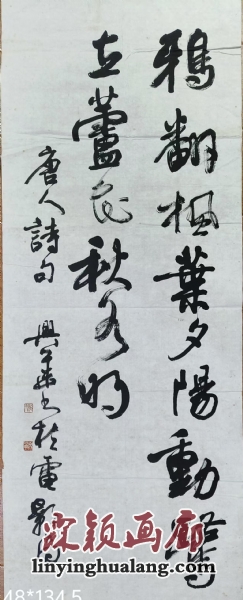 鴉翻楓葉夕陽動鷺
立蘆花秋水明
唐人詩句
興華書於雷
霖颖画廊
linyinghualang.com
48*134.5